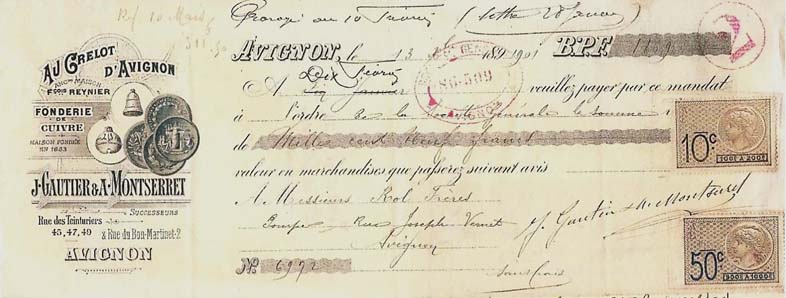 Prorogé au 10 Février (lettre 28 Janv)
Ref 10 Mars
311.50
AU GRELOT
D'AVIGNON
ANCNE MAISON
FÇOIS REYNIER
FONDERIE
DE
CUIVRE
MAISON FONDÉE
EN 1653
J. GAUTIER & A. MONTSERRET
SUCCESSEURS
Rue des Teinturiers
45, 47, 49 & Rue du Bon-Martinet-2
AVIGNON
AVIGNON, le 13 189 1901 B.P.F. 1109
Dix Février
A veuillez payer par ce mandat
à l'ordre de la Société Générale la somme
de Mille cent Neuf francs
valeur en marchandises que passerez suivant avis
A Messieurs Rol Frères
Pompe Rue Joseph Vernet
Avignon
No 6992
Sans frais
J. Gautier & A. Montserret
86.599
AVIGNON
10c
50c